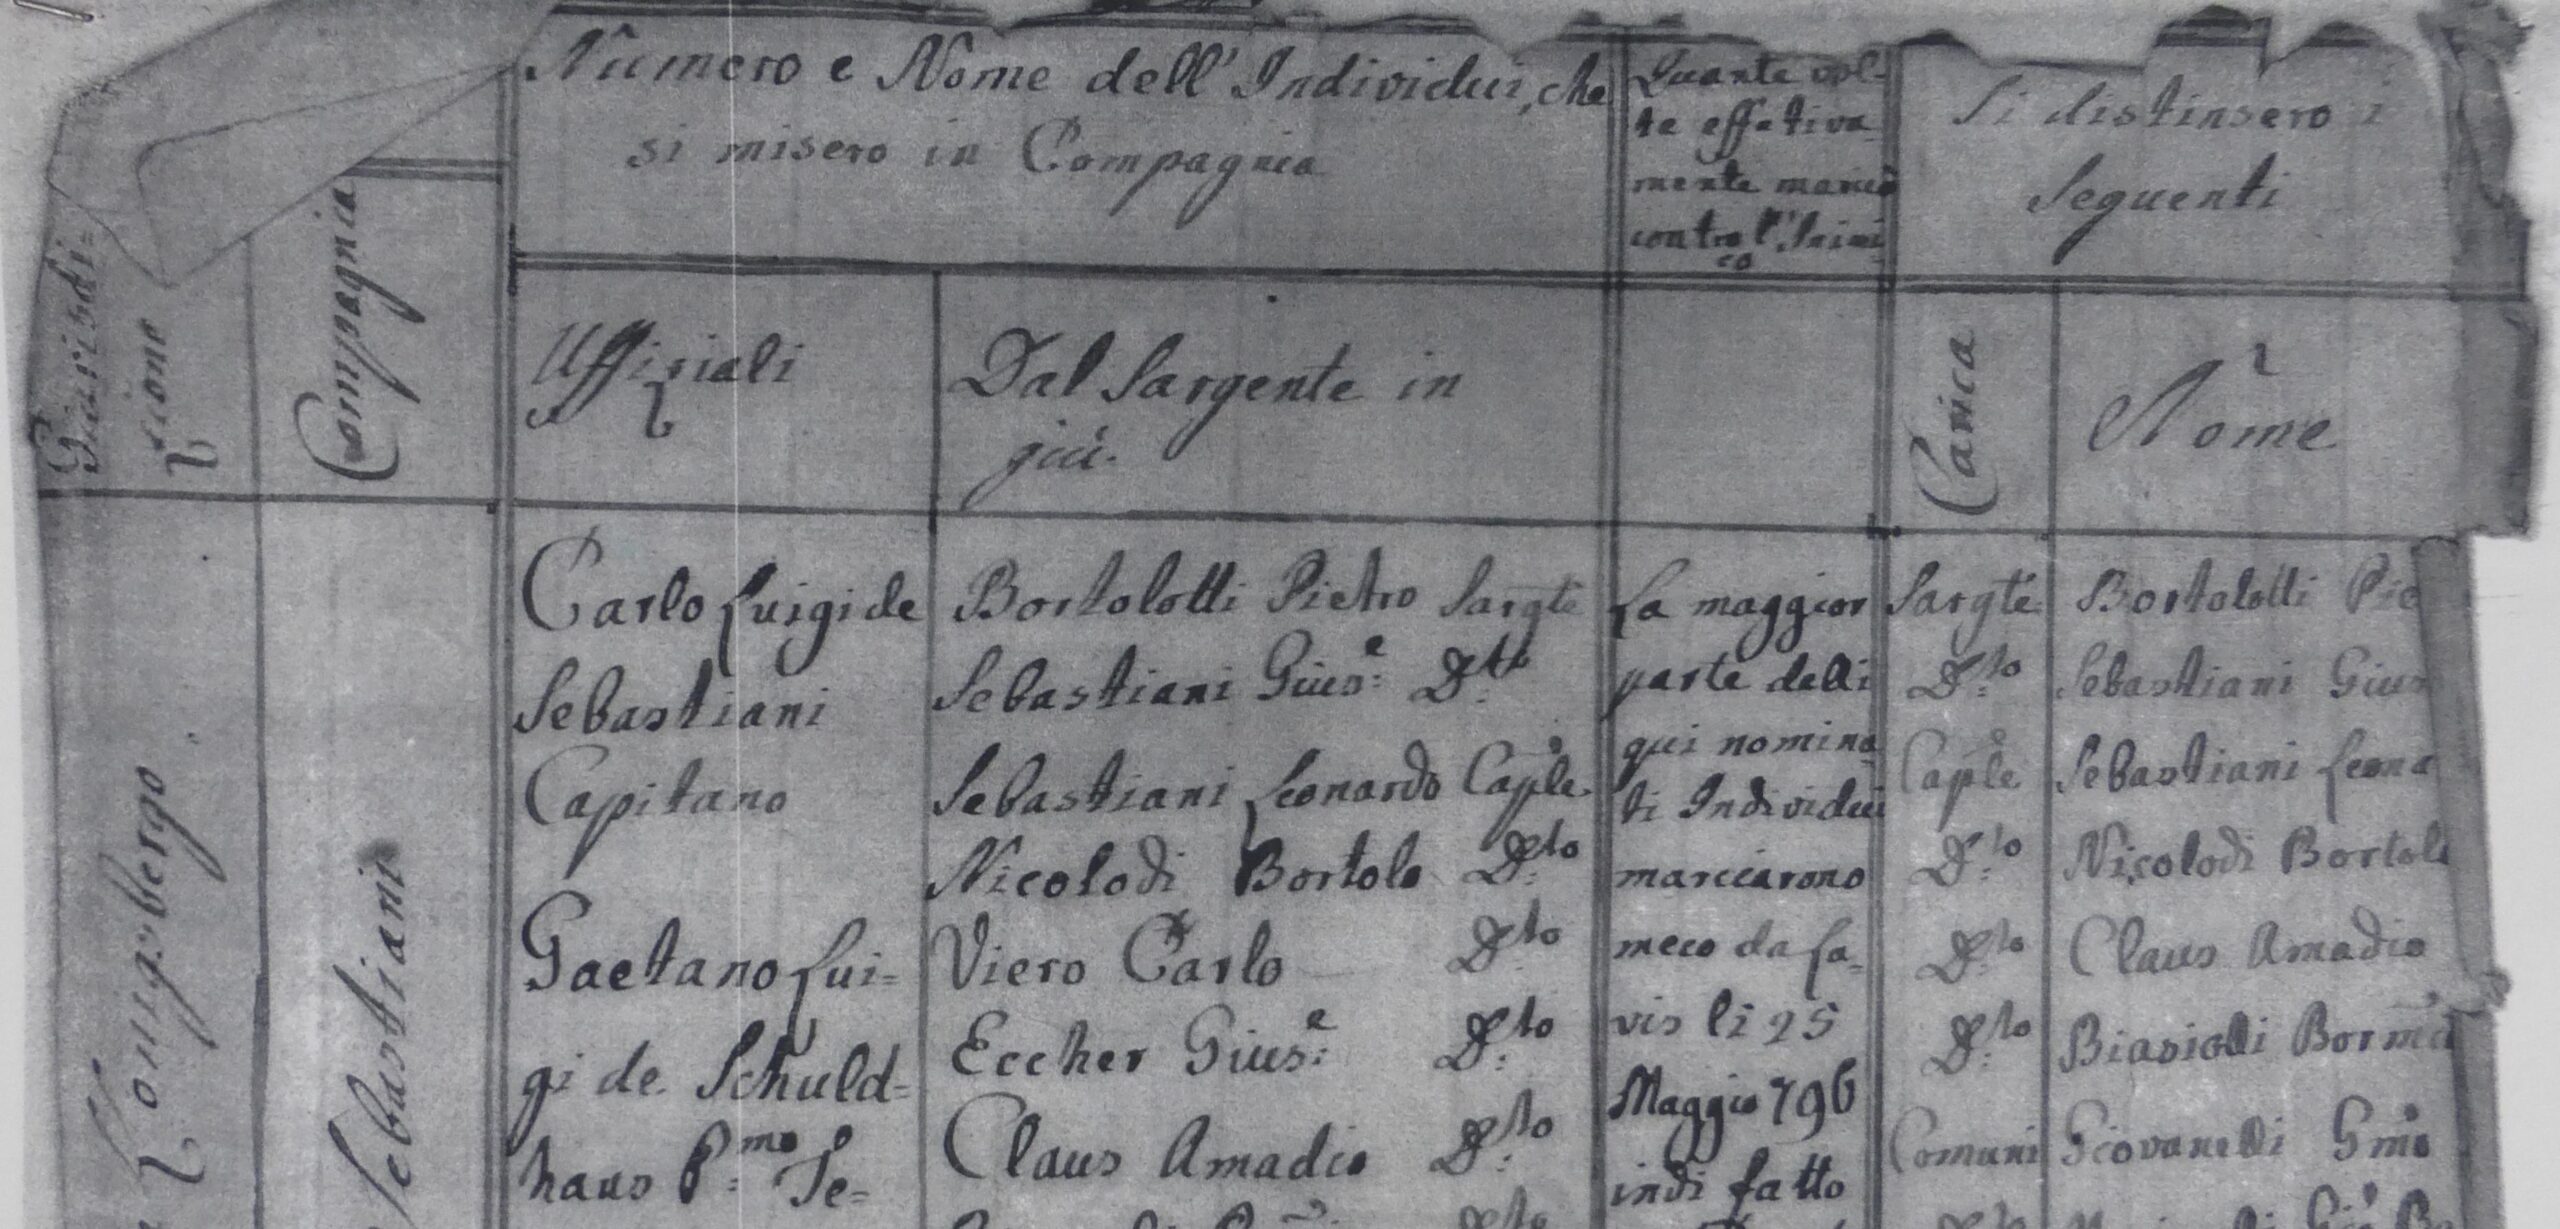 Numero e Nome dell' Individui, che
si misero in Compagnia
Quante vol-
te effetiva-
mente marciò
contro l'Inimi-
co
Si distinsero i
Seguenti
Giurisdi=
zione
Compagnia
Uffiziali
Dal Sargente in
giù.
Carica
Nome
Köngsbergo
Sebastiani
Carlo Luigi de
Sebastiani
Capitano
Gaetano Lui=
gi de Schuld=
haus P:mo Te=
Bortolotti Pietro Sargte
Sebastiani Gius:e D:to
Sebastiani Leonardo Caple
Nicolodi Bortolo D:to
Viero Carlo D:to
Eccher Gius:e D:to
Claus Amadio D:to
La maggior
parte delli
qui nomina-
ti Individui
marciarono
meco da La-
vis li 25
Maggio 796
indi fatto
Sargte
D:to
Caple
D:to
D:to
D:to
Comuni
Bortolotti Pie
Sebastiani Gius
Sebastiani Leona
Nicolodi Bortol
Claus Amadio
Biasioli
Giovanelli